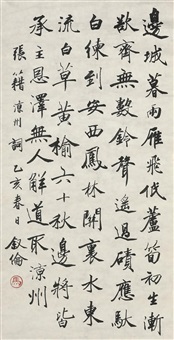 邊城暮雨雁飛低蘆筍初生漸
欲齊無數鈴聲遙過磧應馱
白練到安西鳳林關裏水東
流白草黃榆六十秋邊將皆
承主恩澤無人解道取涼州
張籍涼州詞乙亥春日叙倫